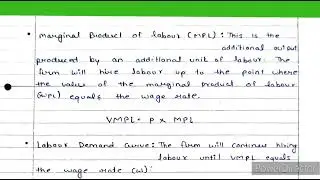 • Marginal Product of labour (MPL): This is the
additional output
produced by an additional unit of labour. The
firm will hire labour up to the point where
the value of the marginal product of labour
(VMPL) equals the wage rate.
VMPL = P x MPL
• Labour Demand Curve: The firm will continue hiring
labour until VMPL equals
the wage rate (w):